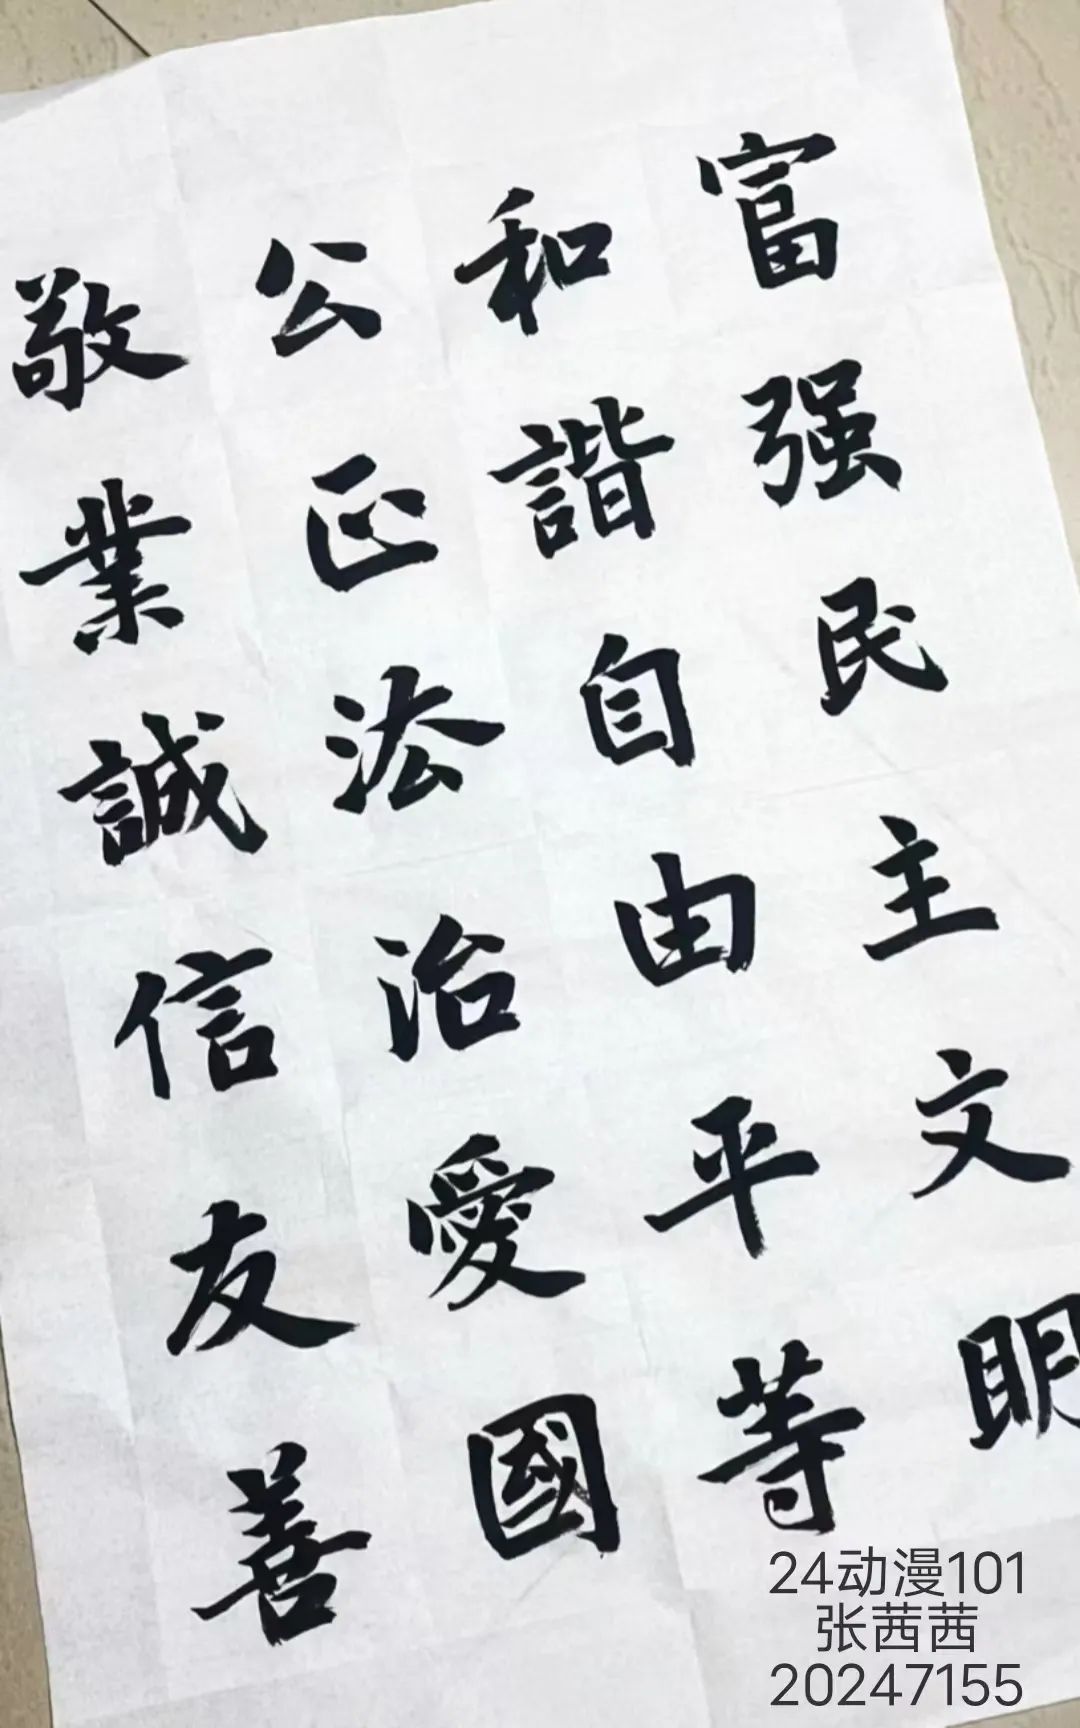 富强民主文明
和諧自由平等
公正法治愛國
敬業誠信友善
24动漫101
张茜茜
20247155